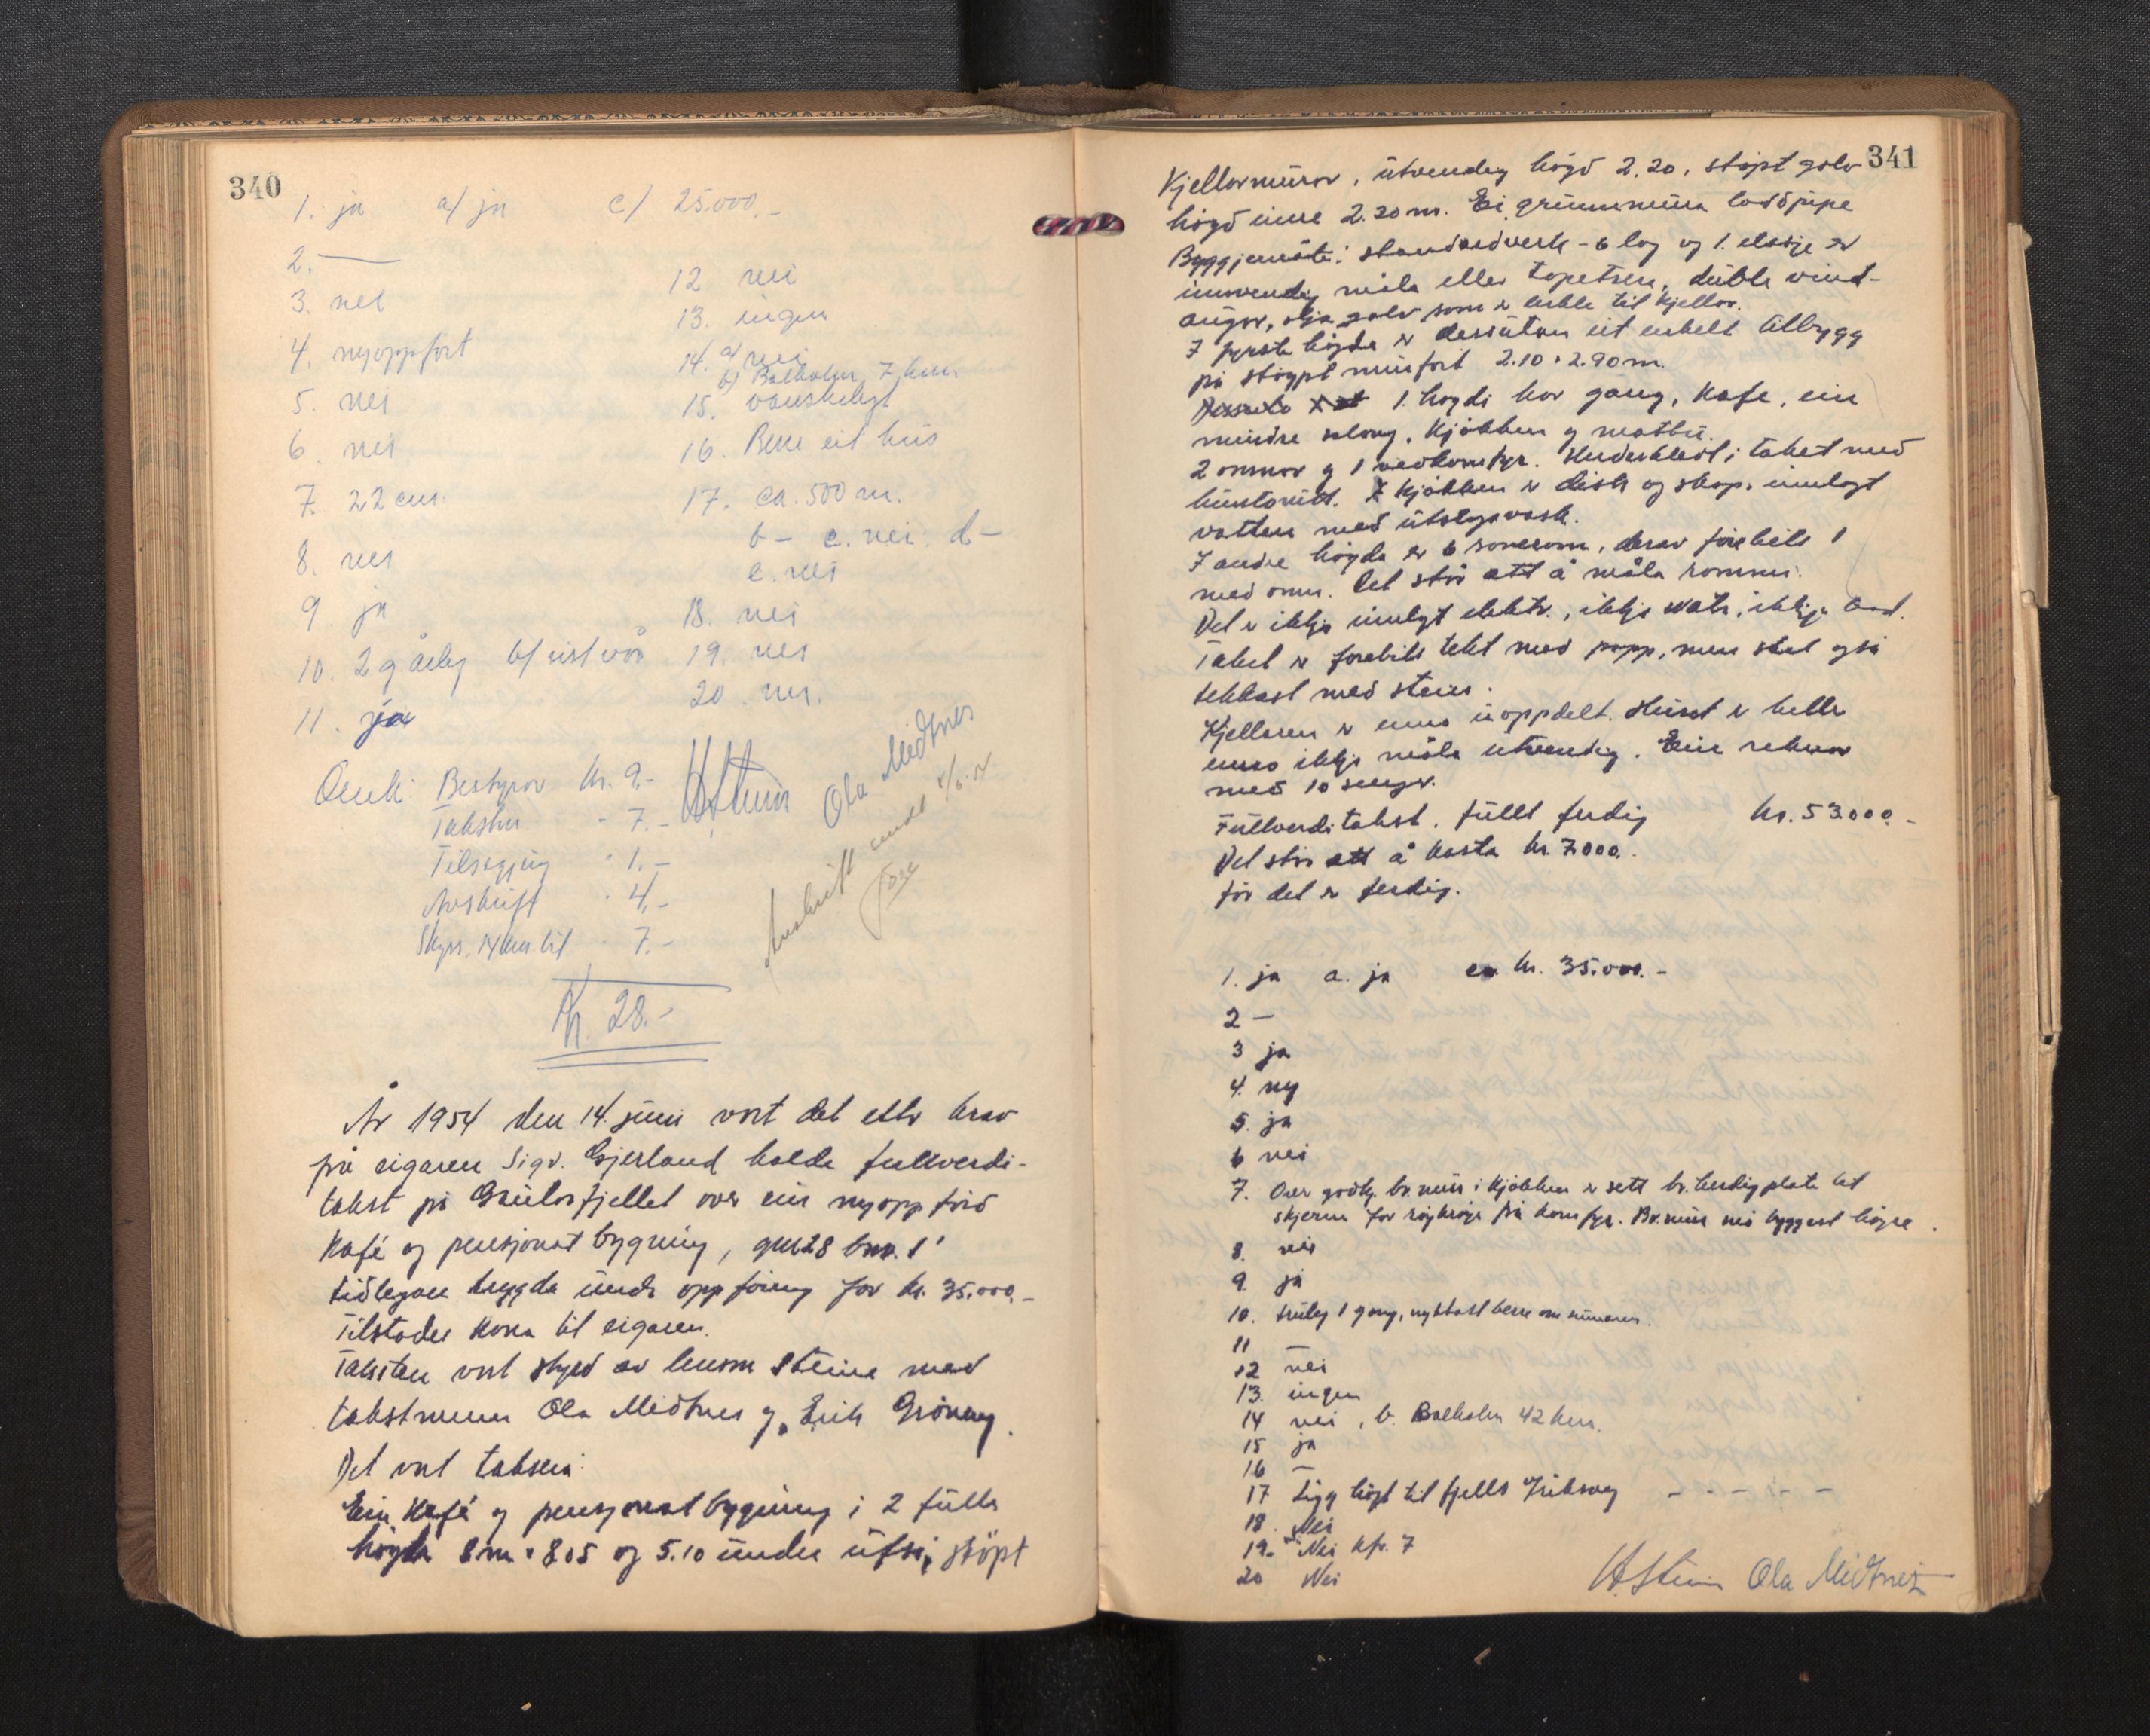 340
1. ja a/ ja c/ 25.000.-
2. —
3. nei
4. nyoppført
5. nei
6. nei
7. 22 cm.
8. nei
9. ja
10. 2 g årleg b/ sist vår
11. ja
12 nei
13. ingen
14. a/ nei
b) Balholm, 7 km
15. vanskelegt
16. Berre eit hus
17. ca. 500 m.
b – c. nei. d –
e. nei
18. nei
19. nei
20. nei.
Bestyrar kr. 9.-
Takstm " 7.-
Tilsegjing " 1.-
Avskrift " 4.-
Skyss, 14 km til " 7.-
Kr. 28.-
Ola Midtnes
Avskrift sendt
År 1954 den 14. juni vart det etter krav
frå eigaren Sigv. Gjerland halde fullverdi-
takst på Gaularfjellet over ein nyoppførd
Kafé og pensjonat bygning, gnr 28 bnr. 1
tidlegare trygda under oppføring for kr. 35.000.-
Tilstades kona til eigaren.
Taksten vart styrd av lensm Steine med
takstmenn Ola Midtnes og Erik Grøneng.
Det vart taksera:
Ein Kafé og pensjonat bygning i 2 fulle
høgda 8 m × 8.05 og 5.10 under ufsi, støpt
341
Kjellarmurar, utvendig høgd 2.20, støpt golv
høgd inne 2.20 m. Ei grunnmura loddpipe
Byggjemåte: standardverk - 6 lag og 1. etasje er
innvendig måla eller tapetsera, duble vind-
augor, olja golv som er enkle til kjellar.
I fyrste høgda er dessutan eit enkelt tilbygg
på støypt mur fort 2.10 × 2.90 m.
1. høgdi har gang, kafe, ein
mindre salong, kjøkken og matbu.
2 omnar og 1 vedkomfyr. Huda kledt i taket med
huntonitt. I kjøkken er disk og skap, innlagt
vatten med utslagsvask.
I andre høgda er 6 soverom, derav førebils 1
med omn. Det står att å måla rommi.
Det er ikkje innlagt elektr., ikkje vatn, ikkje bad.
Taket er førebils tekt med papp, men skal også
tekkast med stein.
Kjellaren er enno uoppdelt. Huset er heller
enno ikkje måla utvendig. Ein reknar
med 10 senger.
Fullverditakst. fullt ferdig kr. 53.000.-
Det står att å kosta kr. 7.000.-
før det er ferdig.
1. ja a. ja c. kr. 35.000.-
2 –
3 ja
4. ny
5. ja
6 nei
7. Over godkj. br.mur i kjøkken er sett br.herdig plate til
skjerm for røykrøyr frå komfyr. Br.mur må byggast høgre.
8. nei
9. ja
10. truleg 1 gong, nyttast berre om sumaren.
11 –
12 nei
13. ingen
14 nei, b. Balholm 42 km.
15 ja
16 –
17 Ligg høgt til fjells v/riksveg – – – – –
18. Nei
19. Nei kfr. 7
20 Nei
Ola Midtnes